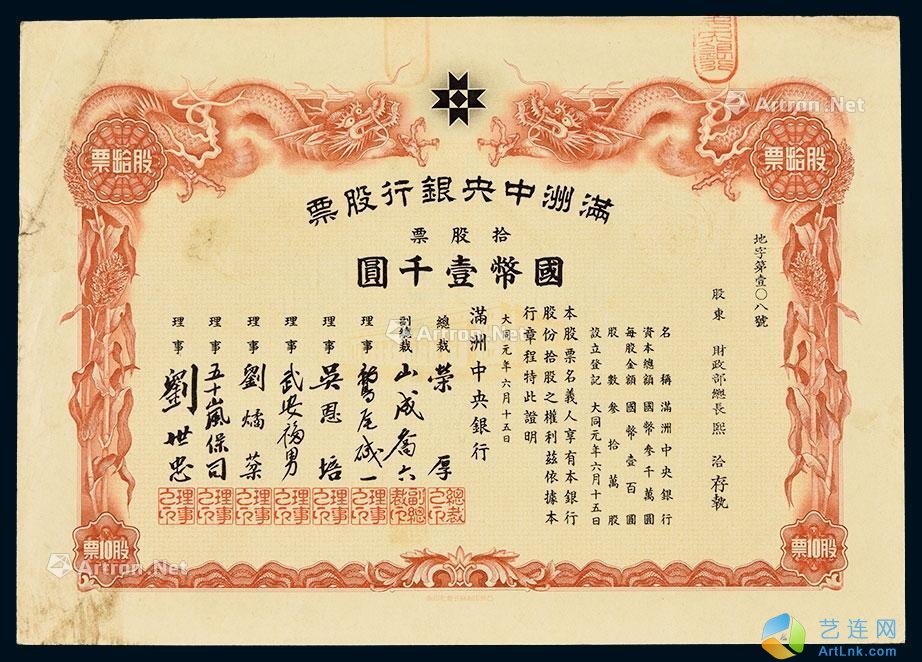 滿洲中央銀行股票
拾股票
國幣壹千圓
股拾票
股拾票
地字第壹〇八號
股東 財政部總長熙洽存執
名稱 滿洲中央銀行
資本總額 國幣參千萬圓
每股金額 國幣壹百圓
股數 參拾萬股
設立登記 大同元年六月十五日
本股票名義人享有本銀行
股份拾股之權利茲依據本
行章程特此證明
大同元年六月十五日
滿洲中央銀行
總裁 榮厚
副總裁 山成喬六
理事 鷲尾磯一
理事 吳恩培
理事 武安福男
理事 劉燏棻
理事 五十嵐保司
理事 劉世忠
總裁之印
副總裁印
理事之印
理事之印
理事之印
理事之印
理事之印
理事之印
股10票
股10票
Artron.Net
Artron.Net
Artron.Net
Artron.Net
Artron.Net
艺连网
ArtLnk.com